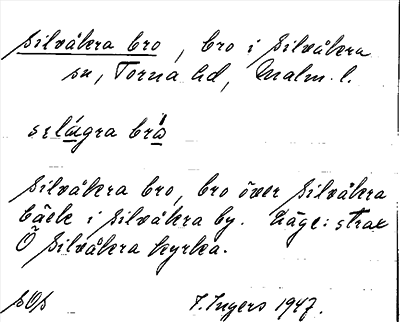 Silvåkra bro, bro i Silvåkra
sn, Torna hd, Malm. l.
selågra brå
Silvåkra bro, bro över Silvåkra
bäck i Silvåkra by. Läge: strax
Ö Silvåkra kyrka.
I. Ingers 1947.